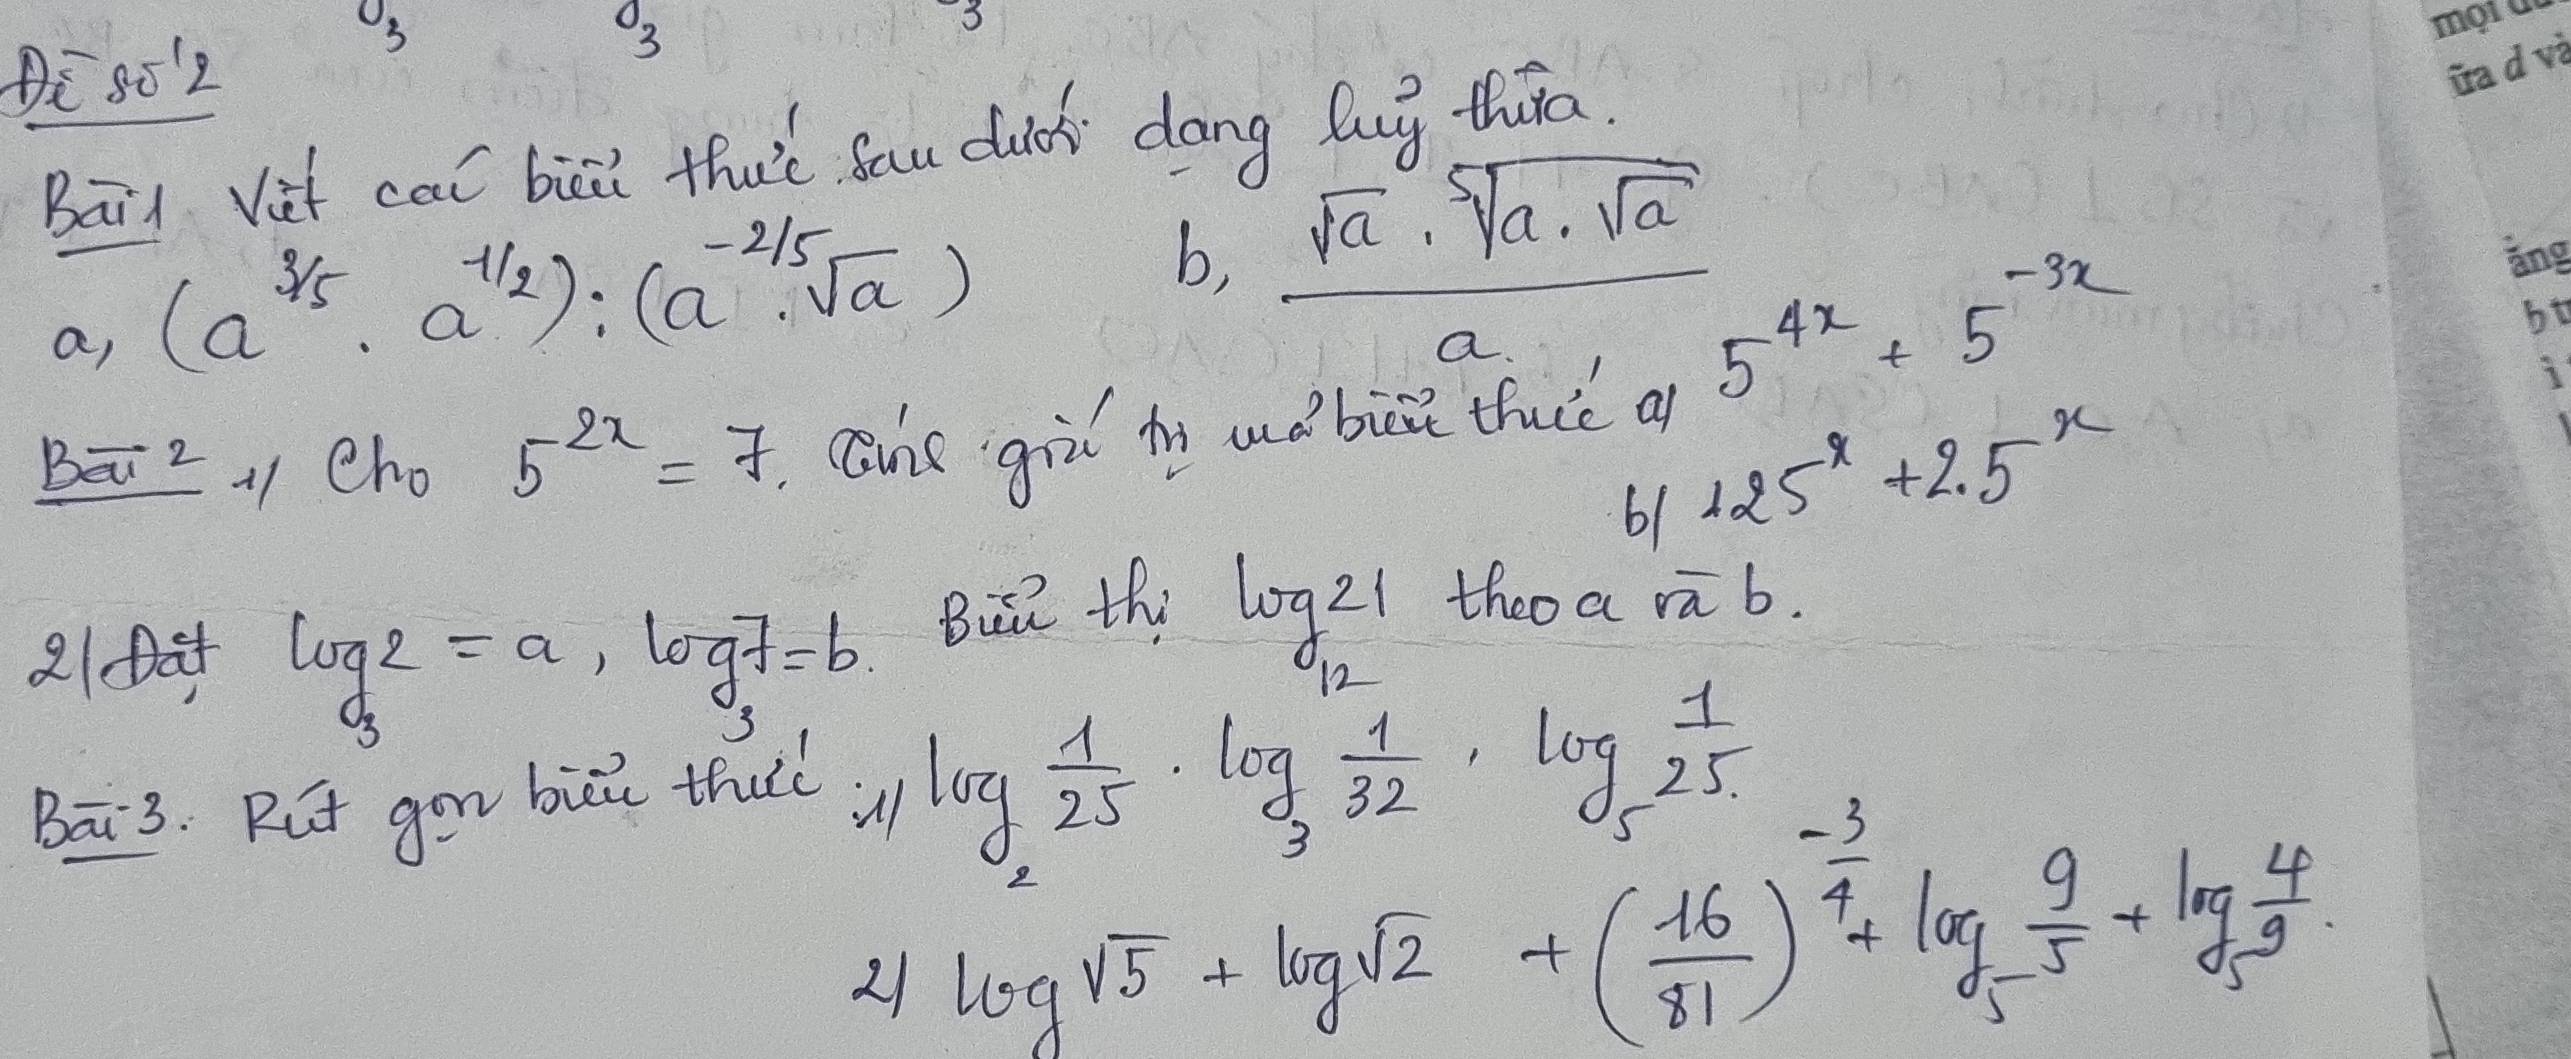 Đề số 2
Bài 1 Viết các biểu thức sau dưới dạng luỹ thừa.
a, (a^{3/5} . a^{1/2}) : (a^{-2/5} . √a) b, (√a . ⁵√(a . √a)) / a
Bài 2 1/ Cho 5^{2x} = 7. Tính giá trị của biểu thức a/ 5^{4x} + 5^{-3x}
b/ 125^x + 2.5^x
2/ Đặt log_3 2 = a, log_3 7 = b. Biểu thị log_12 21 theo a và b.
Bài 3. Rút gọn biểu thức : 1/ log_2 1/25 . log_3 1/32 . log_5 1/25.
2/ log√5 + log√2 + (16/81)^{-3/4} + log_5 9/5 + log_5 4/9.
mọi
ữa d và
ẳng